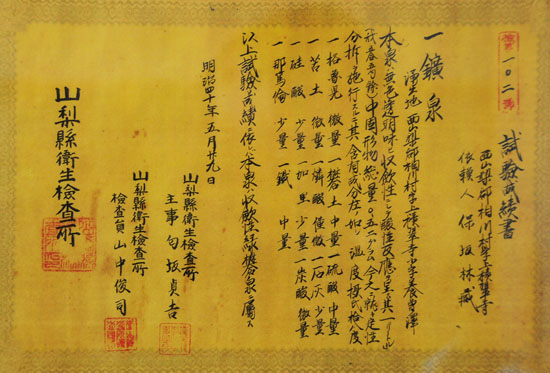 第一〇二号
試驗成績書
西山梨郡相川村字上積翠寺
依頼人 保坂林藏
一 鑛泉
湧生地 西山梨郡相川村字上積翠寺
本泉ハ無色透明味ハ收飲性ニシテ酸性反應ヲ呈シ其一リートル
中固形物総量〇.五
分拆ヲ施行スルニ其含有成分左ノ如シ 温度摂氏拾八度
一 格魯兒 微量 一 礬土 中量 一 硫酸 中量
一 苦土 微量 一 燐酸 僅微 一 石灰 少量
一 硅酸 少量 一 加里 少量 一 炭酸 微量
一 那篤倫 少量 一 鐵 中量
以上試驗ノ成績ニ依レハ本泉ハ收飲性緑礬泉ニ屬ス
明治四十年五月廿九日
山梨縣衛生檢査所
主事 匂坂貞吉
山梨縣衛生檢査所
檢査員 山中俊司
山梨縣衛生檢査所